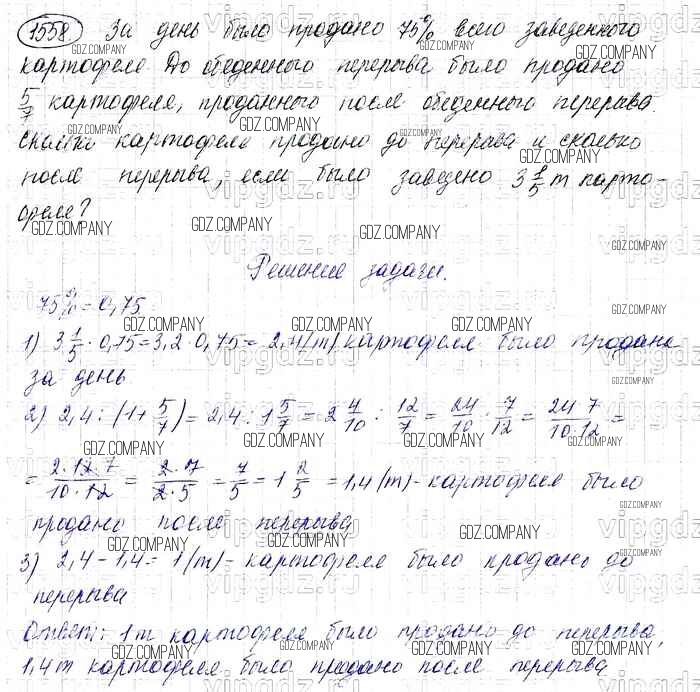 1558. За день было продано 75% всего заведенного
картофеля. До обеденного перерыва было продано
5/7 картофеля, проданного после обеденного перерыва.
Сколько картофеля продано до перерыва и сколько
после перерыва, если было заведено 3 1/5 т карто-
феля?
Решение задачи.
75% = 0,75
1) 3 1/5 · 0,75 = 3,2 · 0,75 = 2,4 (т) картофеля было продано
за день
2) 2,4 : (1 + 5/7) = 2,4 : 1 5/7 = 2 4/10 : 12/7 = 24/10 · 7/12 = 24·7/10·12 =
= 2·12·7/10·12 = 2·7/2·5 = 7/5 = 1 2/5 = 1,4 (т) - картофеля было
продано после перерыва
3) 2,4 - 1,4 = 1 (т) - картофеля было продано до
перерыва
Ответ: 1 т картофеля было продано до перерыва,
1,4 т картофеля было продано после перерыва
GDZ.COMPANY
vipgdz.ru